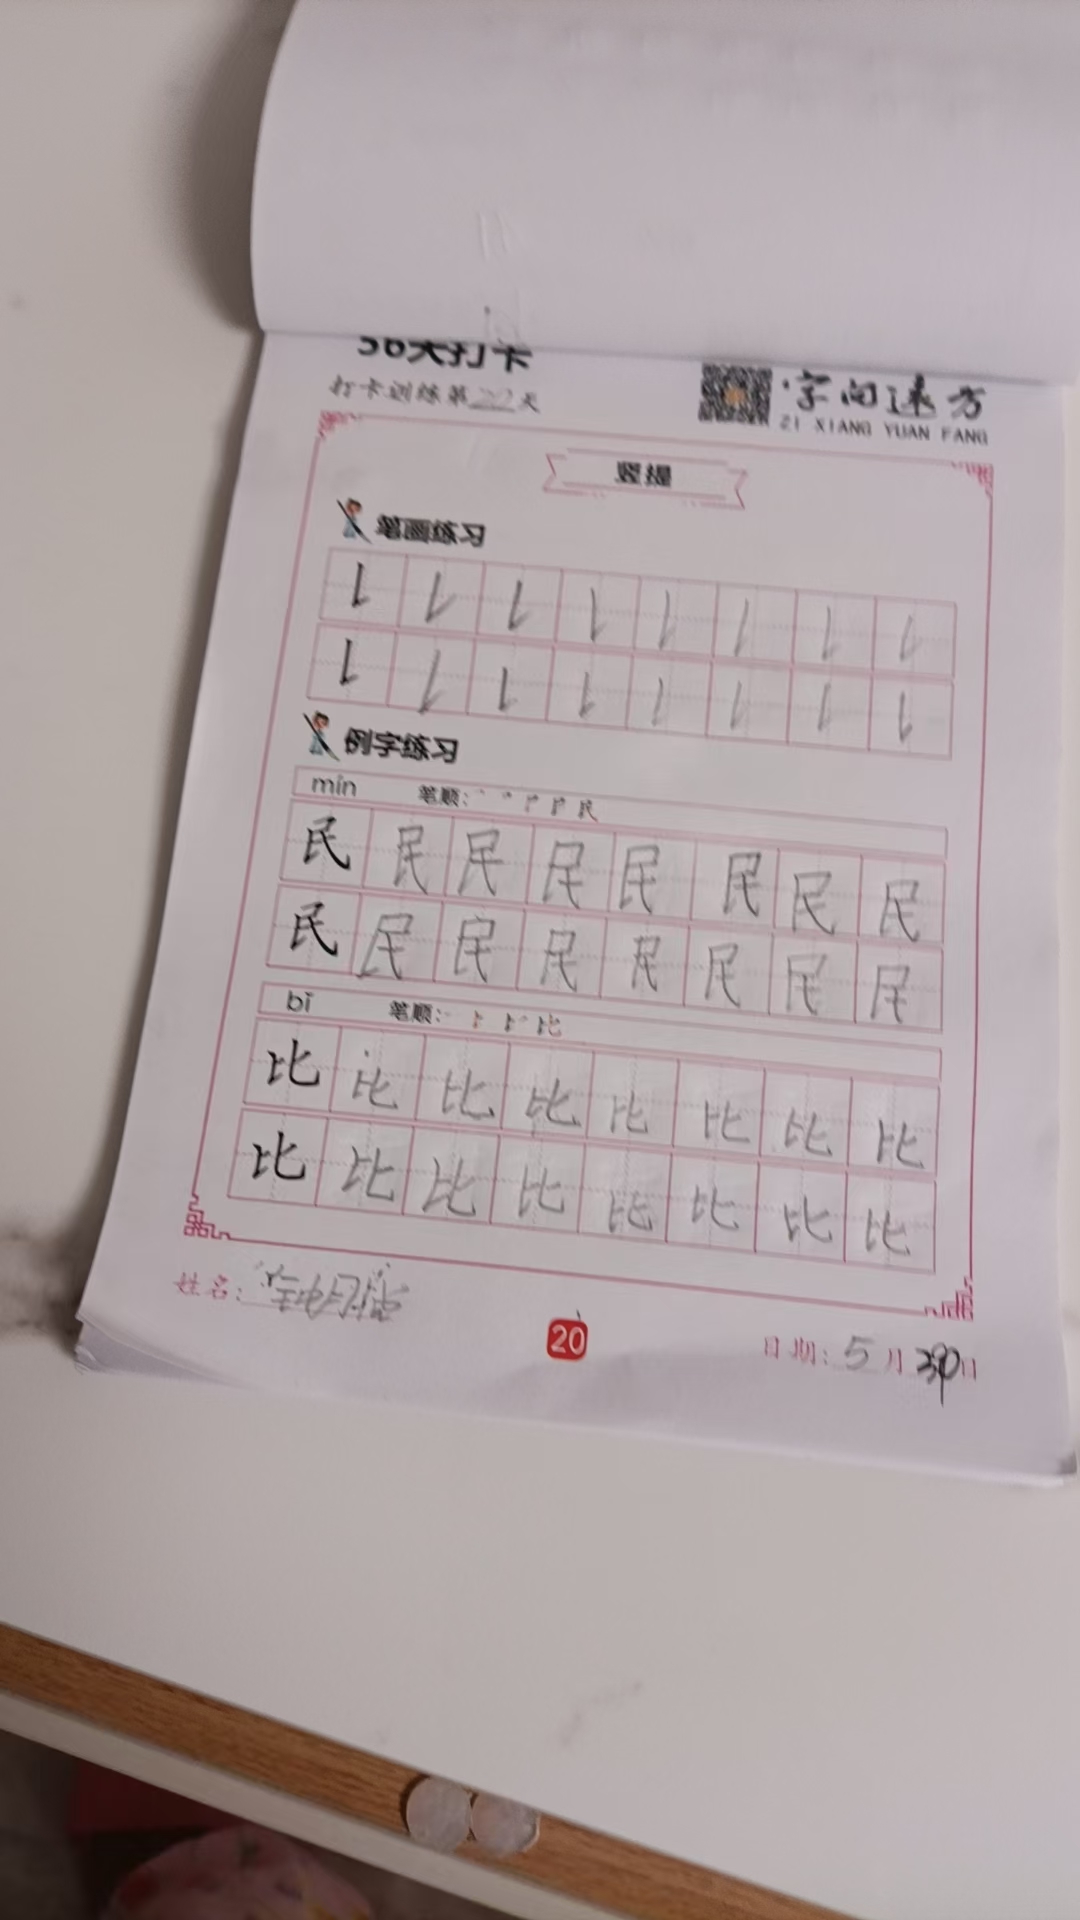 36天打卡
打卡训练第22天
字向远方
ZI XIANG YUAN FANG
竖提
笔画练习
例字练习
mín 笔顺：
民 民 民 民 民 民 民 民
民 民 民 民 民 民 民 民
bǐ 笔顺：
比 比 比 比 比 比 比 比
比 比 比 比 比 比 比 比
姓名：
20
日期：5月30日